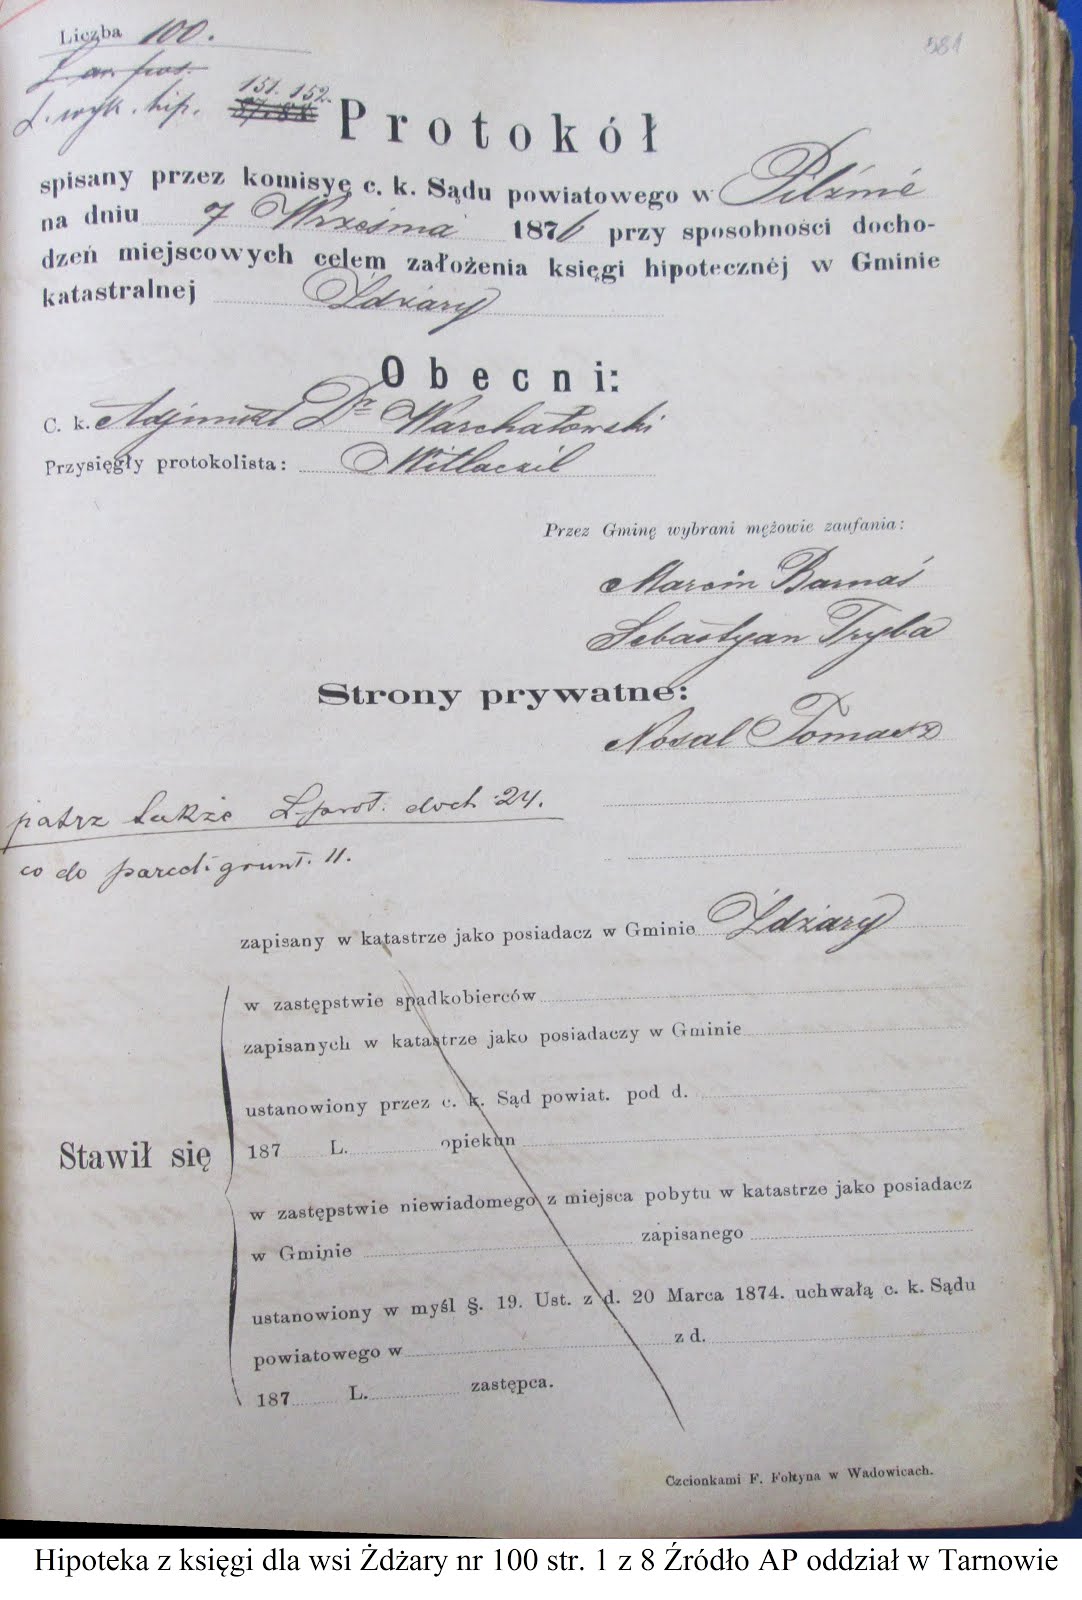 Liczba 100.
581
L. wyk. hip. 151. 152.
Protokół
spisany przez komisyę c. k. Sądu powiatowego w Pilźnie
na dniu 7 Września 1876 przy sposobności docho-
dzeń miejscowych celem założenia księgi hipotecznéj w Gminie
katastralnej Żdżary
Obecni:
C. k. Adjunkt Dr Warchałowski
Przysięgły protokolista: Witlaczil
Przez Gminę wybrani mężowie zaufania:
Marcin Barnaś
Sebastyan Tryba
Strony prywatne:
Nosal Tomasz
patrz także L. prot. doch. 24.
co do parceli grunt. 11.
zapisany w katastrze jako posiadacz w Gminie Żdżary
w zastępstwie spadkobierców
zapisanych w katastrze jako posiadaczy w Gminie
ustanowiony przez c. k. Sąd powiat. pod d.
Stawił się
187 L. opiekun
w zastępstwie niewiadomego z miejsca pobytu w katastrze jako posiadacz
w Gminie zapisanego
ustanowiony w myśl §. 19. Ust. z d. 20 Marca 1874. uchwałą c. k. Sądu
powiatowego w z d.
187 L. zastępca.
Czcionkami F. Foltyna w Wadowicach.
Hipoteka z księgi dla wsi Żdżary nr 100 str. 1 z 8 Źródło AP oddział w Tarnowie